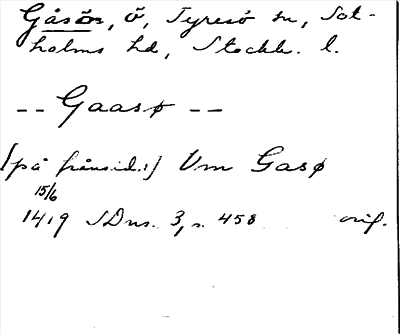 Gåsön, ö, Tyresö sn, Sot-
holms hd, Stockh. l.
-- Gaasø --
[på frånsid.:] Vm Gasø
15/6
1419 SDns. 3, s. 458 orig.